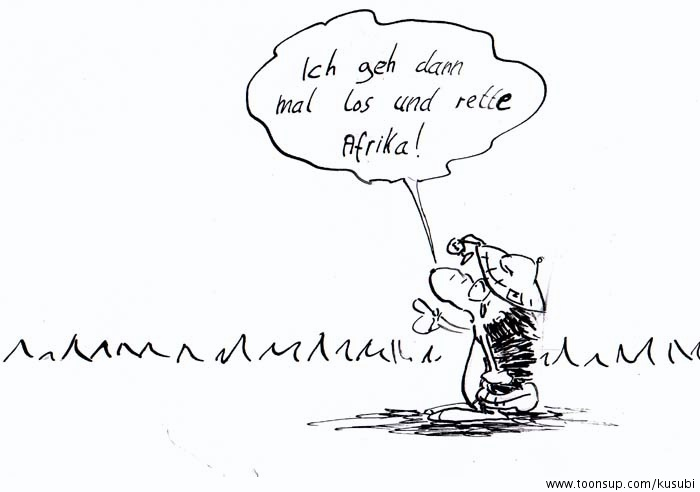 Ich geh dann
mal los und rette
Afrika!
www.toonsup.com/kusubi